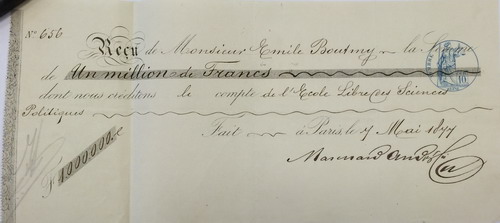 No. 656
Reçu de Monsieur Emile Boutmy la Somme
de Un million de Francs
dont nous créditons le compte de l'Ecole Libre des Sciences
Politiques
Fait à Paris, le 7 Mai 1877
F. 1000000.
10